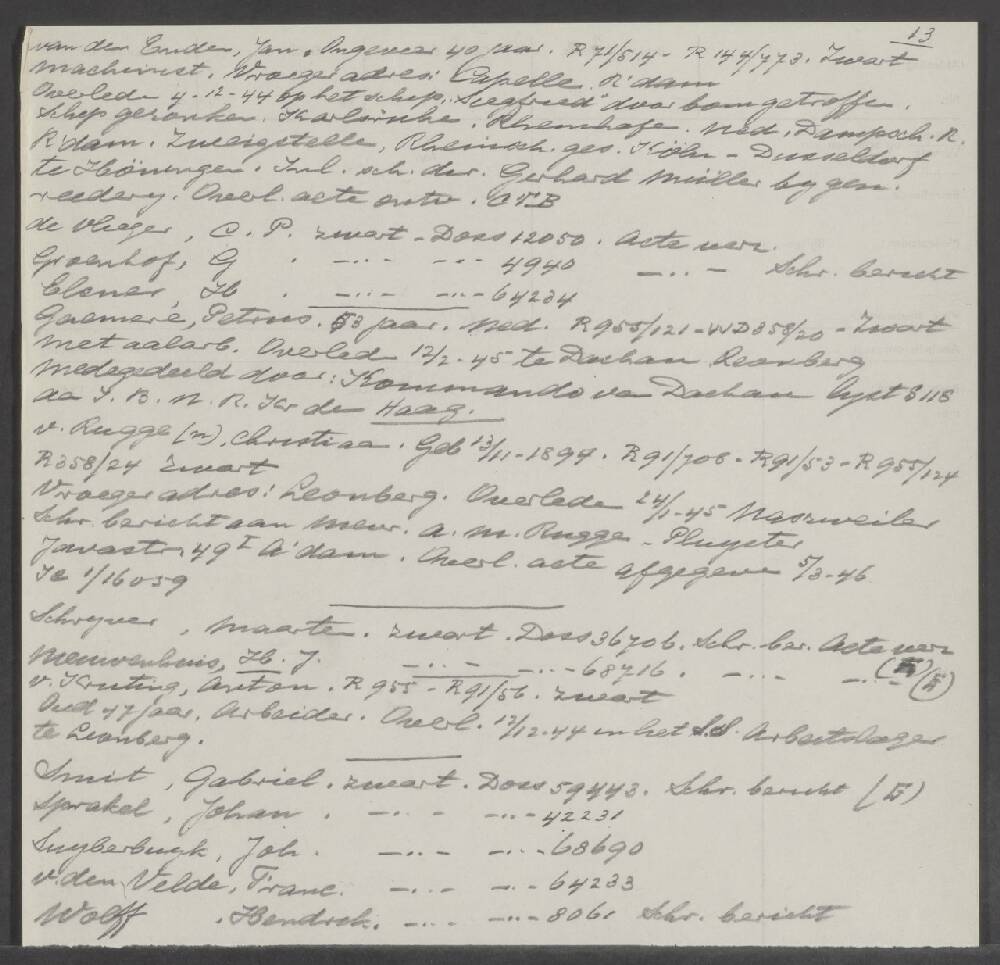 13
van den Enden, Jan. Ongeveer 40 jaar. R 71/514 - R 144/773. Zwart
Machinist. Vroeger adres: Capelle. R'dam
Overleden 4-12-44 op het schip "Siegfried" door bomgetroffen.
Schip gezonken. Karlsruhe. Rheinhafe. Ned. Dampsch. R.
R'dam. Zweigstelle, Rheinsch. ges. Köln - Dusseldorf
te Höningen. Inl. sch. der. Gerhard Müller by gen.
reedery. Overl. acte ontv. CTB
de Vlieger, C. P. zwart - Doss 12050. Acte verz.
Groenhof, G. -..- -..- 4940 -..- Schr. bericht
Elsner, H. -..- -..- 64234
Gaemere, Petrus. 53 jaar. Ned. R 955/121 - WD 358/20 - Zwart
Metaalarb. Overled 12/2-45 te Dachau Leonberg
Medegedeeld door: Kommando van Dachau lyst 8118
aa I. B. N. R. Kr den Haag.
v. Rugge (n), Christiaa. Geb 13/11-1897. R 91/708 - R 91/53 - R 955/124
R 358/24 Zwart
Vroeger adres: Leonberg. Overlede 24/1-45 Nazweiler
Schr. bericht aan Mevr. A. M. Rugge - Pluyster
Javastr. 49 I A'dam. Overl. acte afgegeven 5/3-46
Je 1/16059
Schryver, Maarte. zwart. Doss 36706. Schr. ber. Acte verz
Nieuwenhuis, H. J. -..- -..- 68716. -..- -..-
v. Kruting, Anton. R 955 - R 91/56. zwart
Oud 47 jaar. Arbeider. Overl. 12/12-44 in het S.S. Arbeitslager
te Leonberg.
Smit, Gabriel. zwart. Doss 59443. Schr. bericht
Sprakel, Johan. -..- -..- 42231
Suyberbuyk, Joh. -..- -..- 68690
v. den Velde, Franc. -..- -..- 64233
Wolff. Hendrik. -..- -..- 8061 Schr. bericht